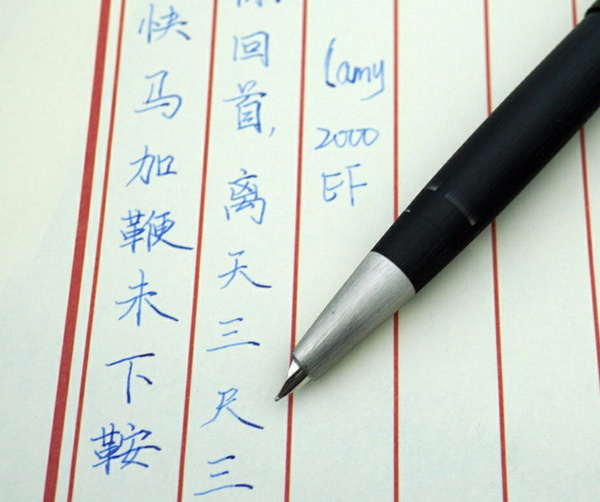 快马加鞭未下鞍
回首,离天三尺三
Lamy
2000
EF